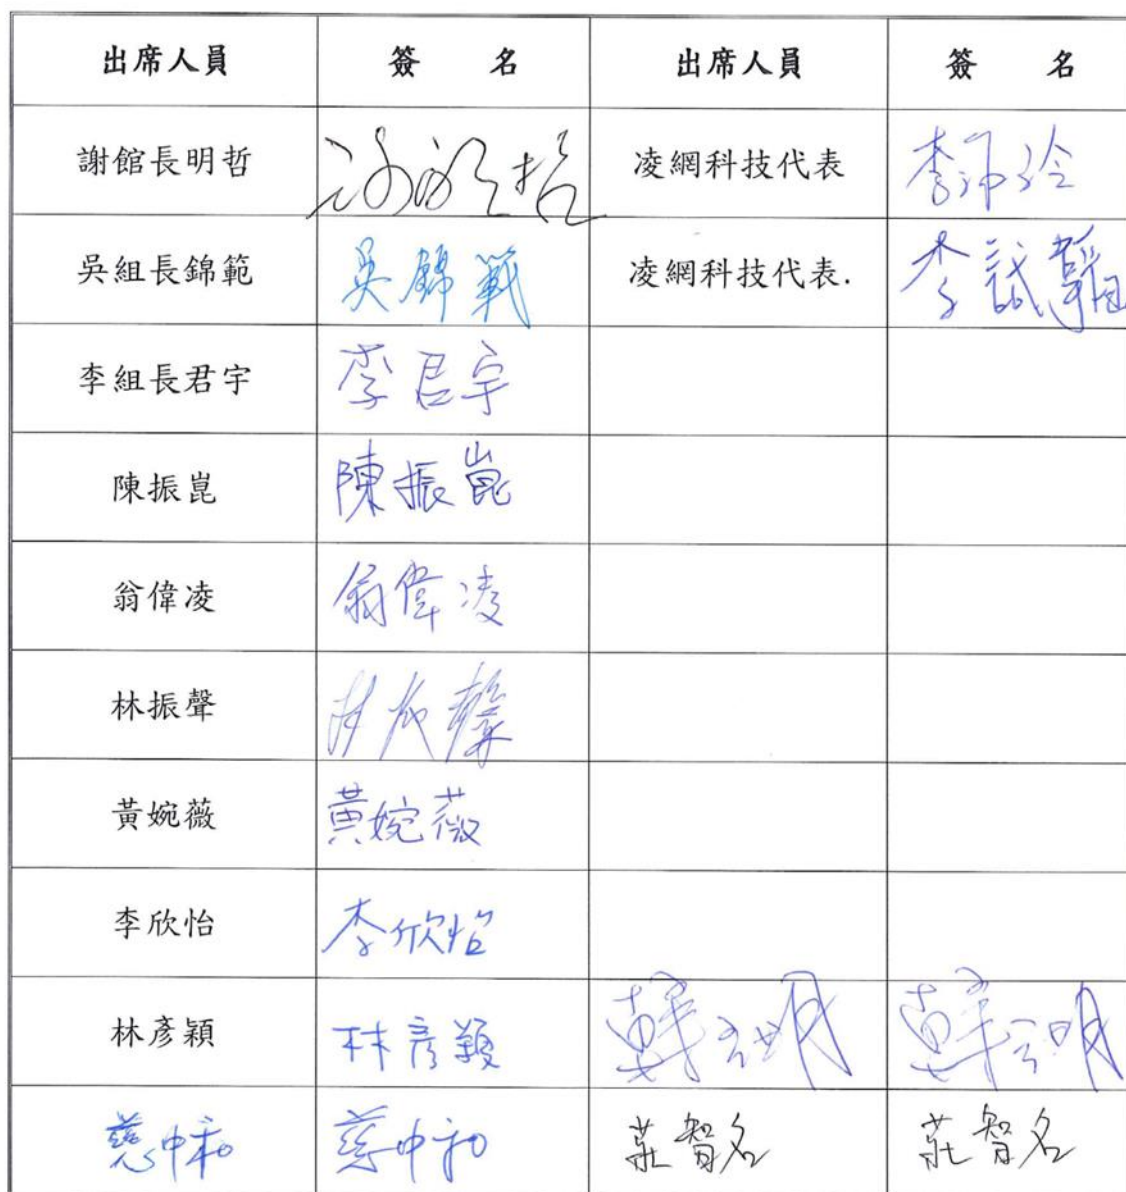 出席人員 簽 名 出席人員 簽 名
謝館長明哲 謝明哲 凌網科技代表 李沛玲
吳組長錦範 吳錦範 凌網科技代表. 李
李組長君宇 李君宇
陳振崑 陳振崑
翁偉凌 翁偉凌
林振聲 林振聲
黃婉薇 黃婉薇
李欣怡 李欣怡
林彥穎 林彥穎
中和 中和 莊智名 莊智名